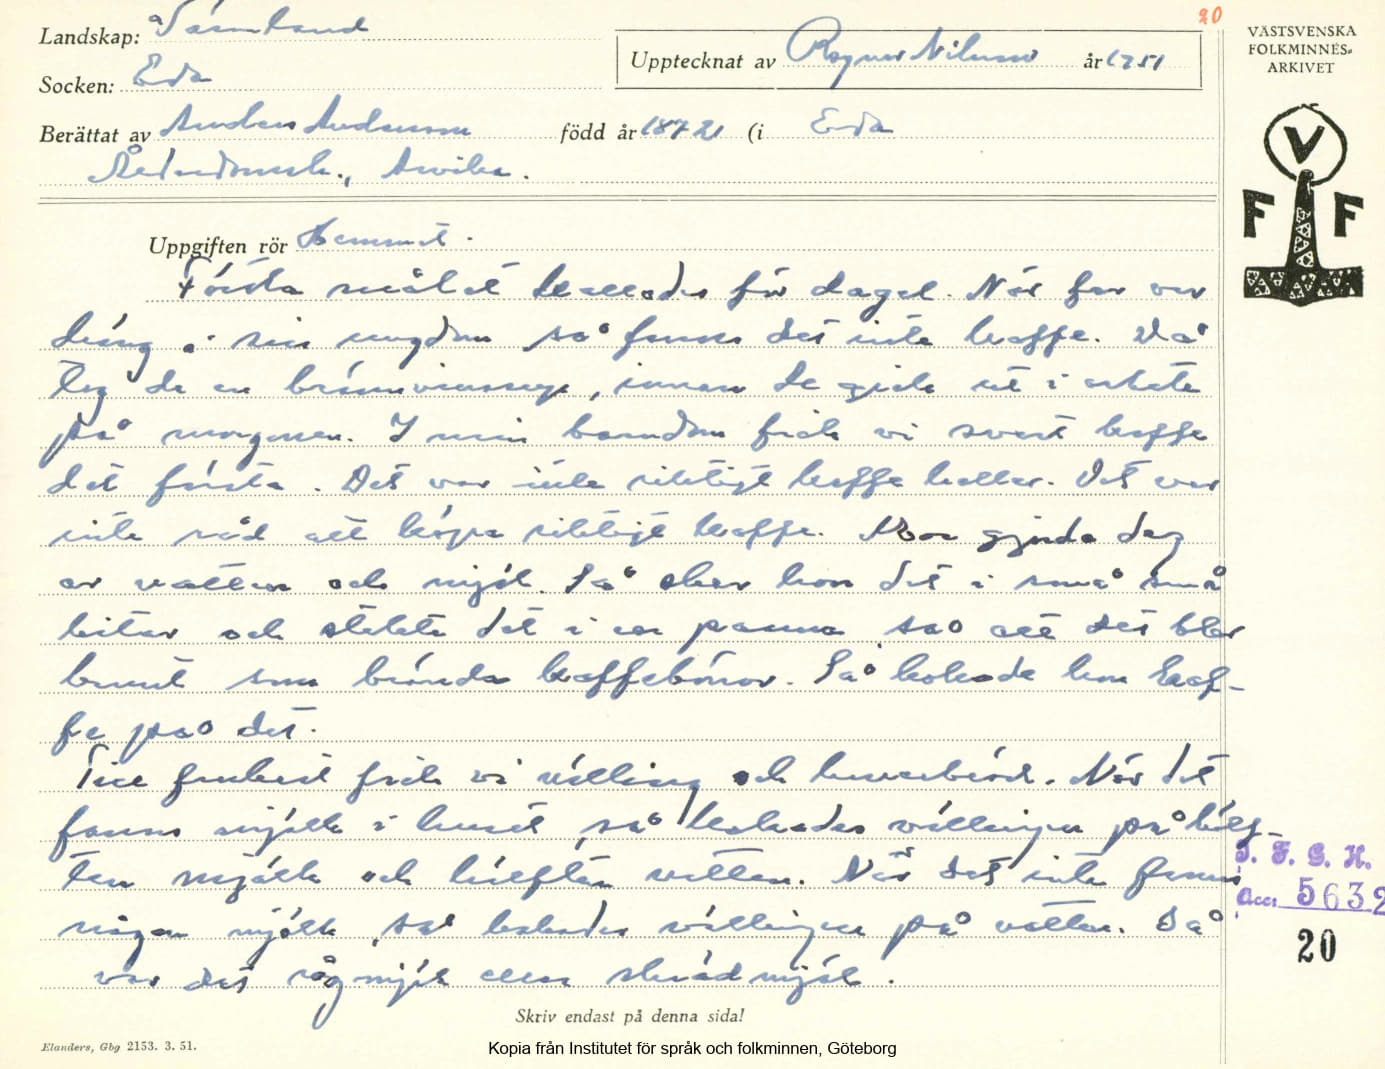 20
Landskap: Värmland
Upptecknat av Ragnar Nilsson år 1951
VÄSTSVENSKA
FOLKMINNES-
ARKIVET
Socken: Eda
Berättat av Anders Andersson född år 1872 (i Eda
Ålderdomsh., Arvika.
V
F F
Uppgiften rör Hemmet.
Första målet kallades för dagel. När far var
dräng i sin ungdom så fanns det inte kaffe. Då
tog de en brännvinssup, innan de gick ut i arbete
på morgonen. I min barndom fick vi svart kaffe
det första. Det var inte riktigt kaffe heller. Det var
inte råd att köpa riktigt kaffe. Mor gjorde deg
av vatten och mjöl. Så skar hon det i små små
bitar och stekte det i en panna så att det blev
brunt som brända kaffebönor. Så kokade hon kaf-
fe på det.
Till frukost fick vi välling och havrebröd. När det
fanns mjölk i huset, så kokades vällingen på hälf-
ten mjölk och hälften vatten. När det inte fanns
någon mjölk, så kokades vällingen på vatten. Då
var det rågmjöl eller skrädmjöl.
I. F. G. H.
Acc. 5632
20
Skriv endast på denna sida!
Elanders, Gbg 2153. 3. 51.
Kopia från Institutet för språk och folkminnen, Göteborg